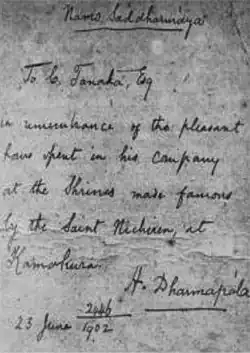 Namo Saddharmāya
To C. Tanaka, Esq
in remembrance of the pleasant
hours spent in his company
at the Shrines made famous
by the Saint Nichiren, at
Kamakura.
H. Dharmapāla
2446
23 June 1902